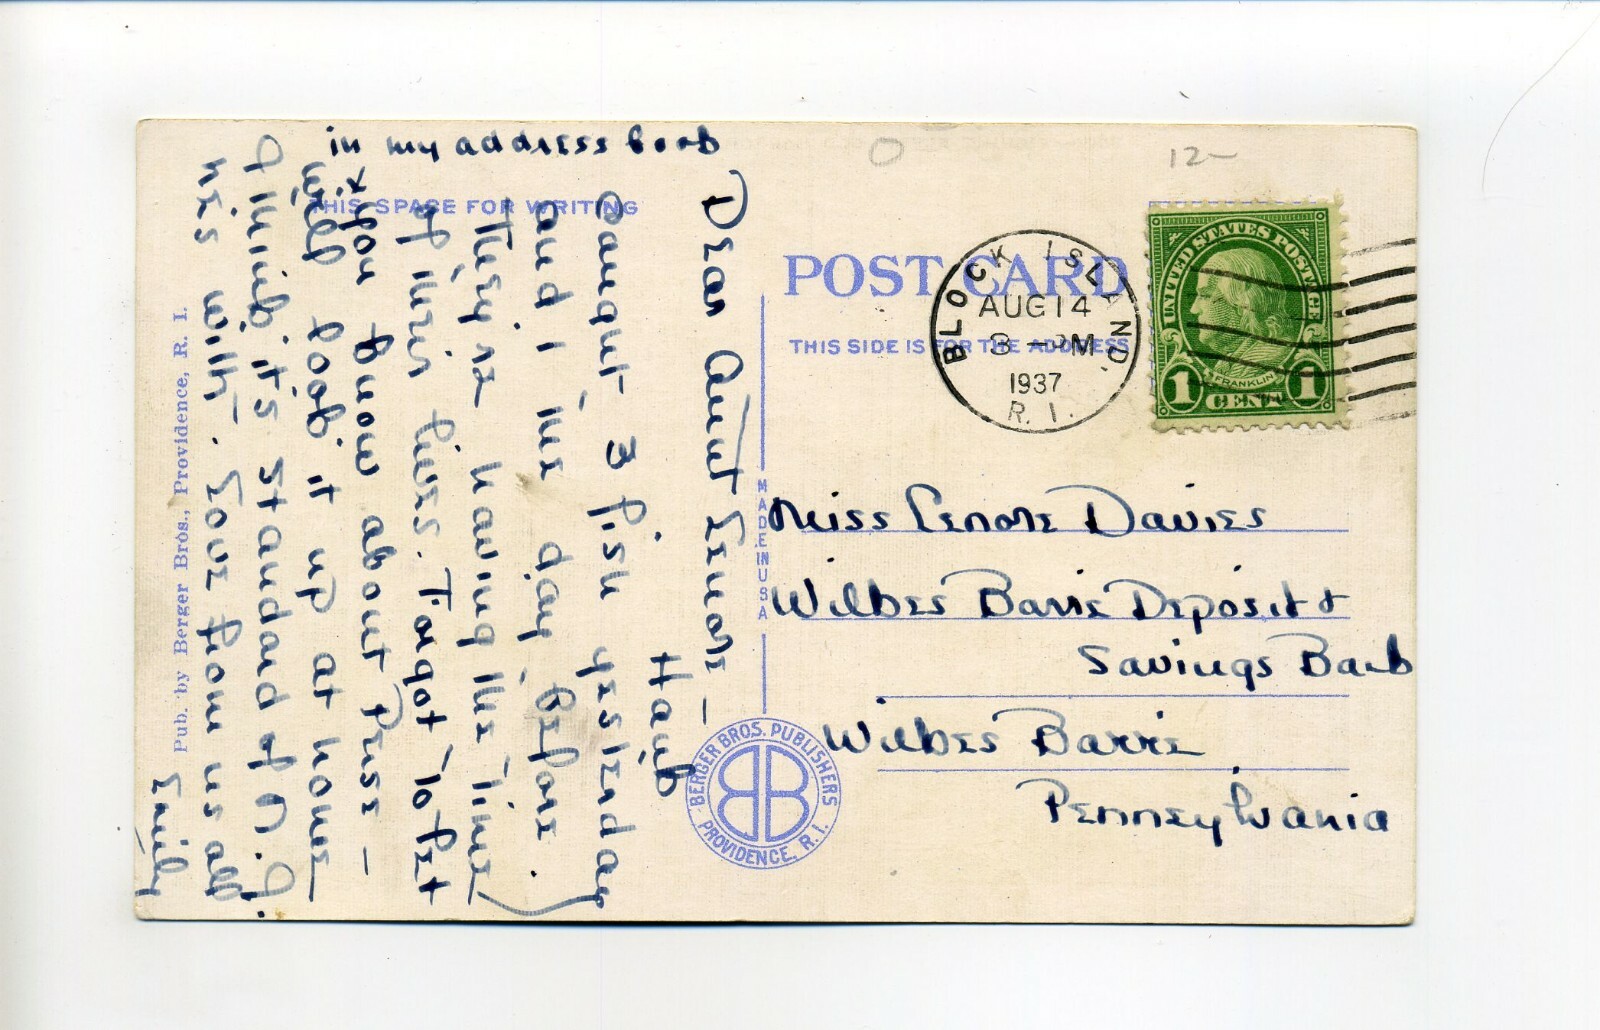 in my address book
Dear Aunt Lenore —
Hank
caught 3 fish yesterday
and 1 the day before.
They're having the time
of their lives. Forgot to put
x you know about Peise —
will look it up at home
I think it's Standard of N.J.
his with. Love from us all
Emily
THIS SPACE FOR WRITING
Pub. by Berger Bros., Providence, R. I.
12-
POST CARD
THIS SIDE IS FOR THE ADDRESS
BLOCK ISLAND,
AUG 14
3 - PM
1937
R. I.
UNITED STATES POSTAGE
FRANKLIN
1 CENT 1
MADE IN USA
Miss Lenore Davies
Wilkes Barre Deposit &
Savings Bank
Wilkes Barre
Pennsylvania
BERGER BROS. PUBLISHERS
BB
PROVIDENCE, R. I.